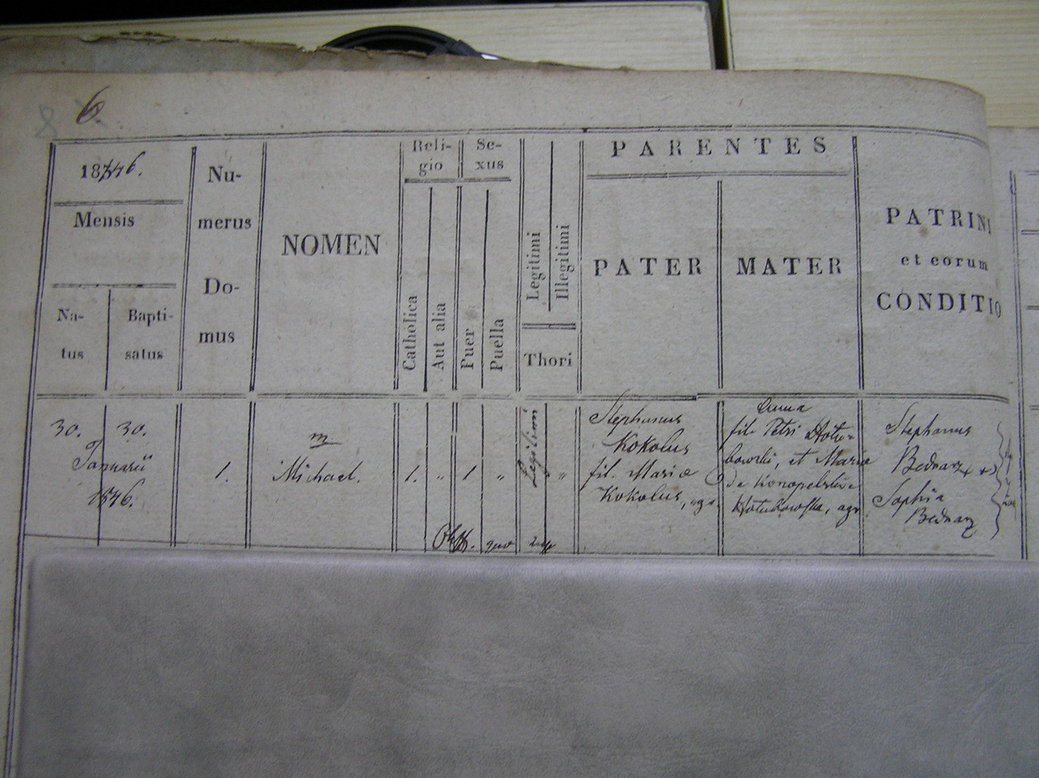 6.
1846.
Mensis
Na-
tus
Bapti-
satus
Nu-
merus
Do-
mus
NOMEN
Reli-
gio
Catholica
Aut alia
Se-
xus
Puer
Puella
Legitimi
Illegitimi
Thori
PARENTES
PATER
MATER
PATRINI
et eorum
CONDITIO
30. 30.
Januarii
1846.
1.
m
Michael.
1.
"
1
"
Legitimi
"
Stephanus
Kokolus
fil. Mariae
Kokolus, agr.
Anna
fil. Petri
et Mariae
de
agr
Stephanus
Bednarz +
Sophia
Bednarz